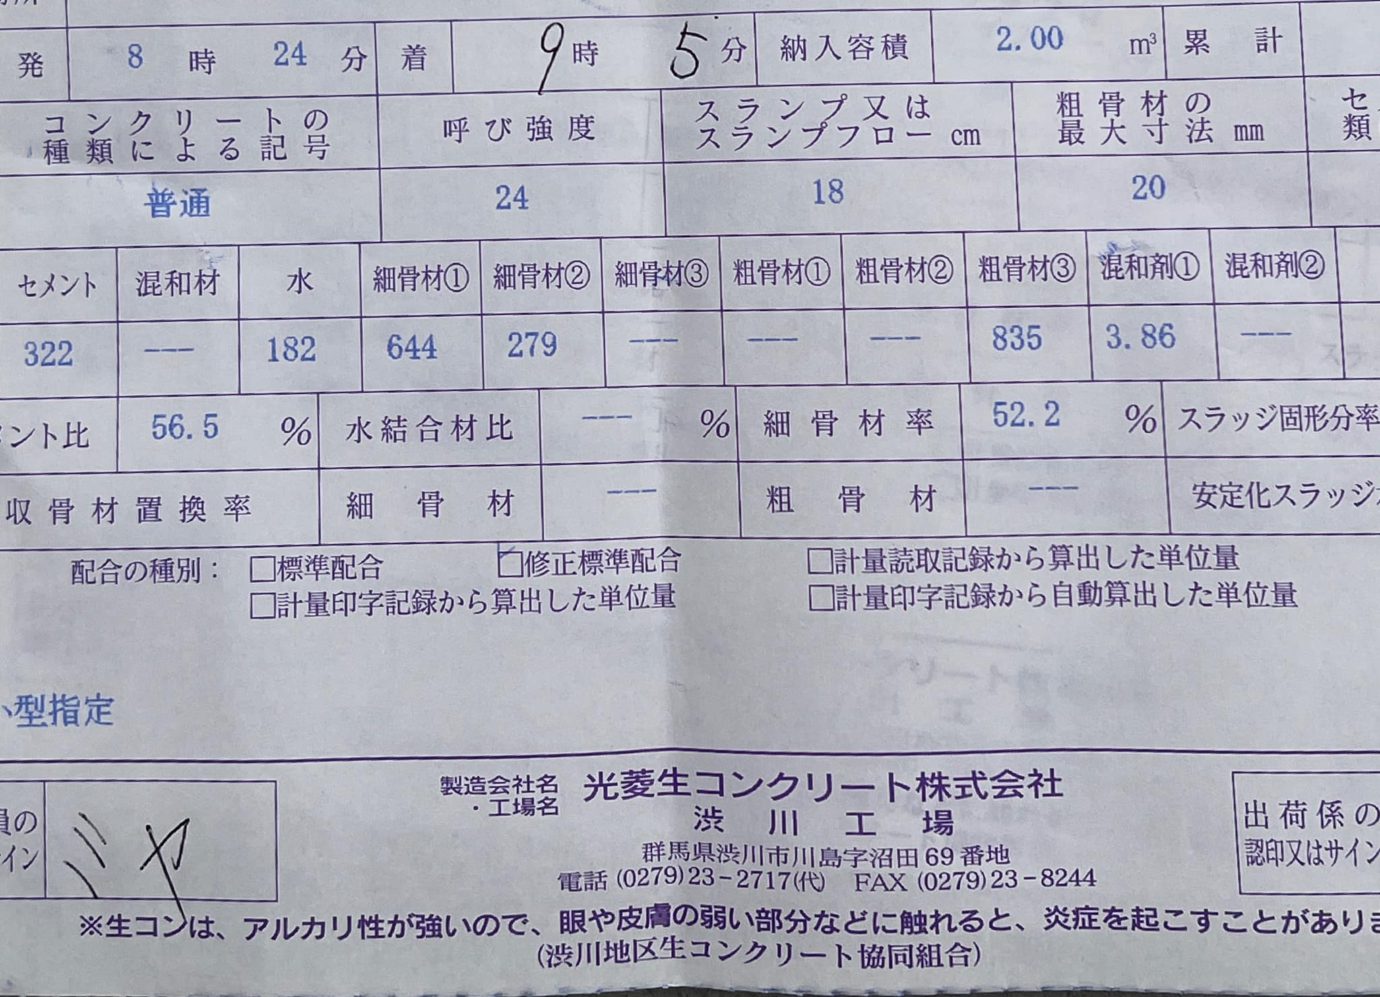 発 8 時 24 分 着 9 時 5 分 納入容積 2.00 m³ 累計
コンクリートの種類による記号 呼び強度 スランプ又はスランプフロー cm 粗骨材の最大寸法 mm
普通 24 18 20
セメント 混和材 水 細骨材① 細骨材② 細骨材③ 粗骨材① 粗骨材② 粗骨材③ 混和剤① 混和剤②
322 --- 182 644 279 --- --- --- 835 3.86 ---
ント比 56.5 % 水結合材比 --- % 細骨材率 52.2 % スラッジ固形分率
収骨材置換率 細骨材 --- 粗骨材 --- 安定化スラッジ
配合の種別： □標準配合 □修正標準配合 □計量読取記録から算出した単位量
□計量印字記録から算出した単位量 □計量印字記録から自動算出した単位量
型指定
製造会社名・工場名 光菱生コンクリート株式会社
渋川工場
群馬県渋川市川島字沼田69番地
電話 (0279)23-2717(代) FAX (0279)23-8244
員の
イン
出荷係の
認印又はサイン
※生コンは、アルカリ性が強いので、眼や皮膚の弱い部分などに触れると、炎症を起こすことがありま
(渋川地区生コンクリート協同組合)